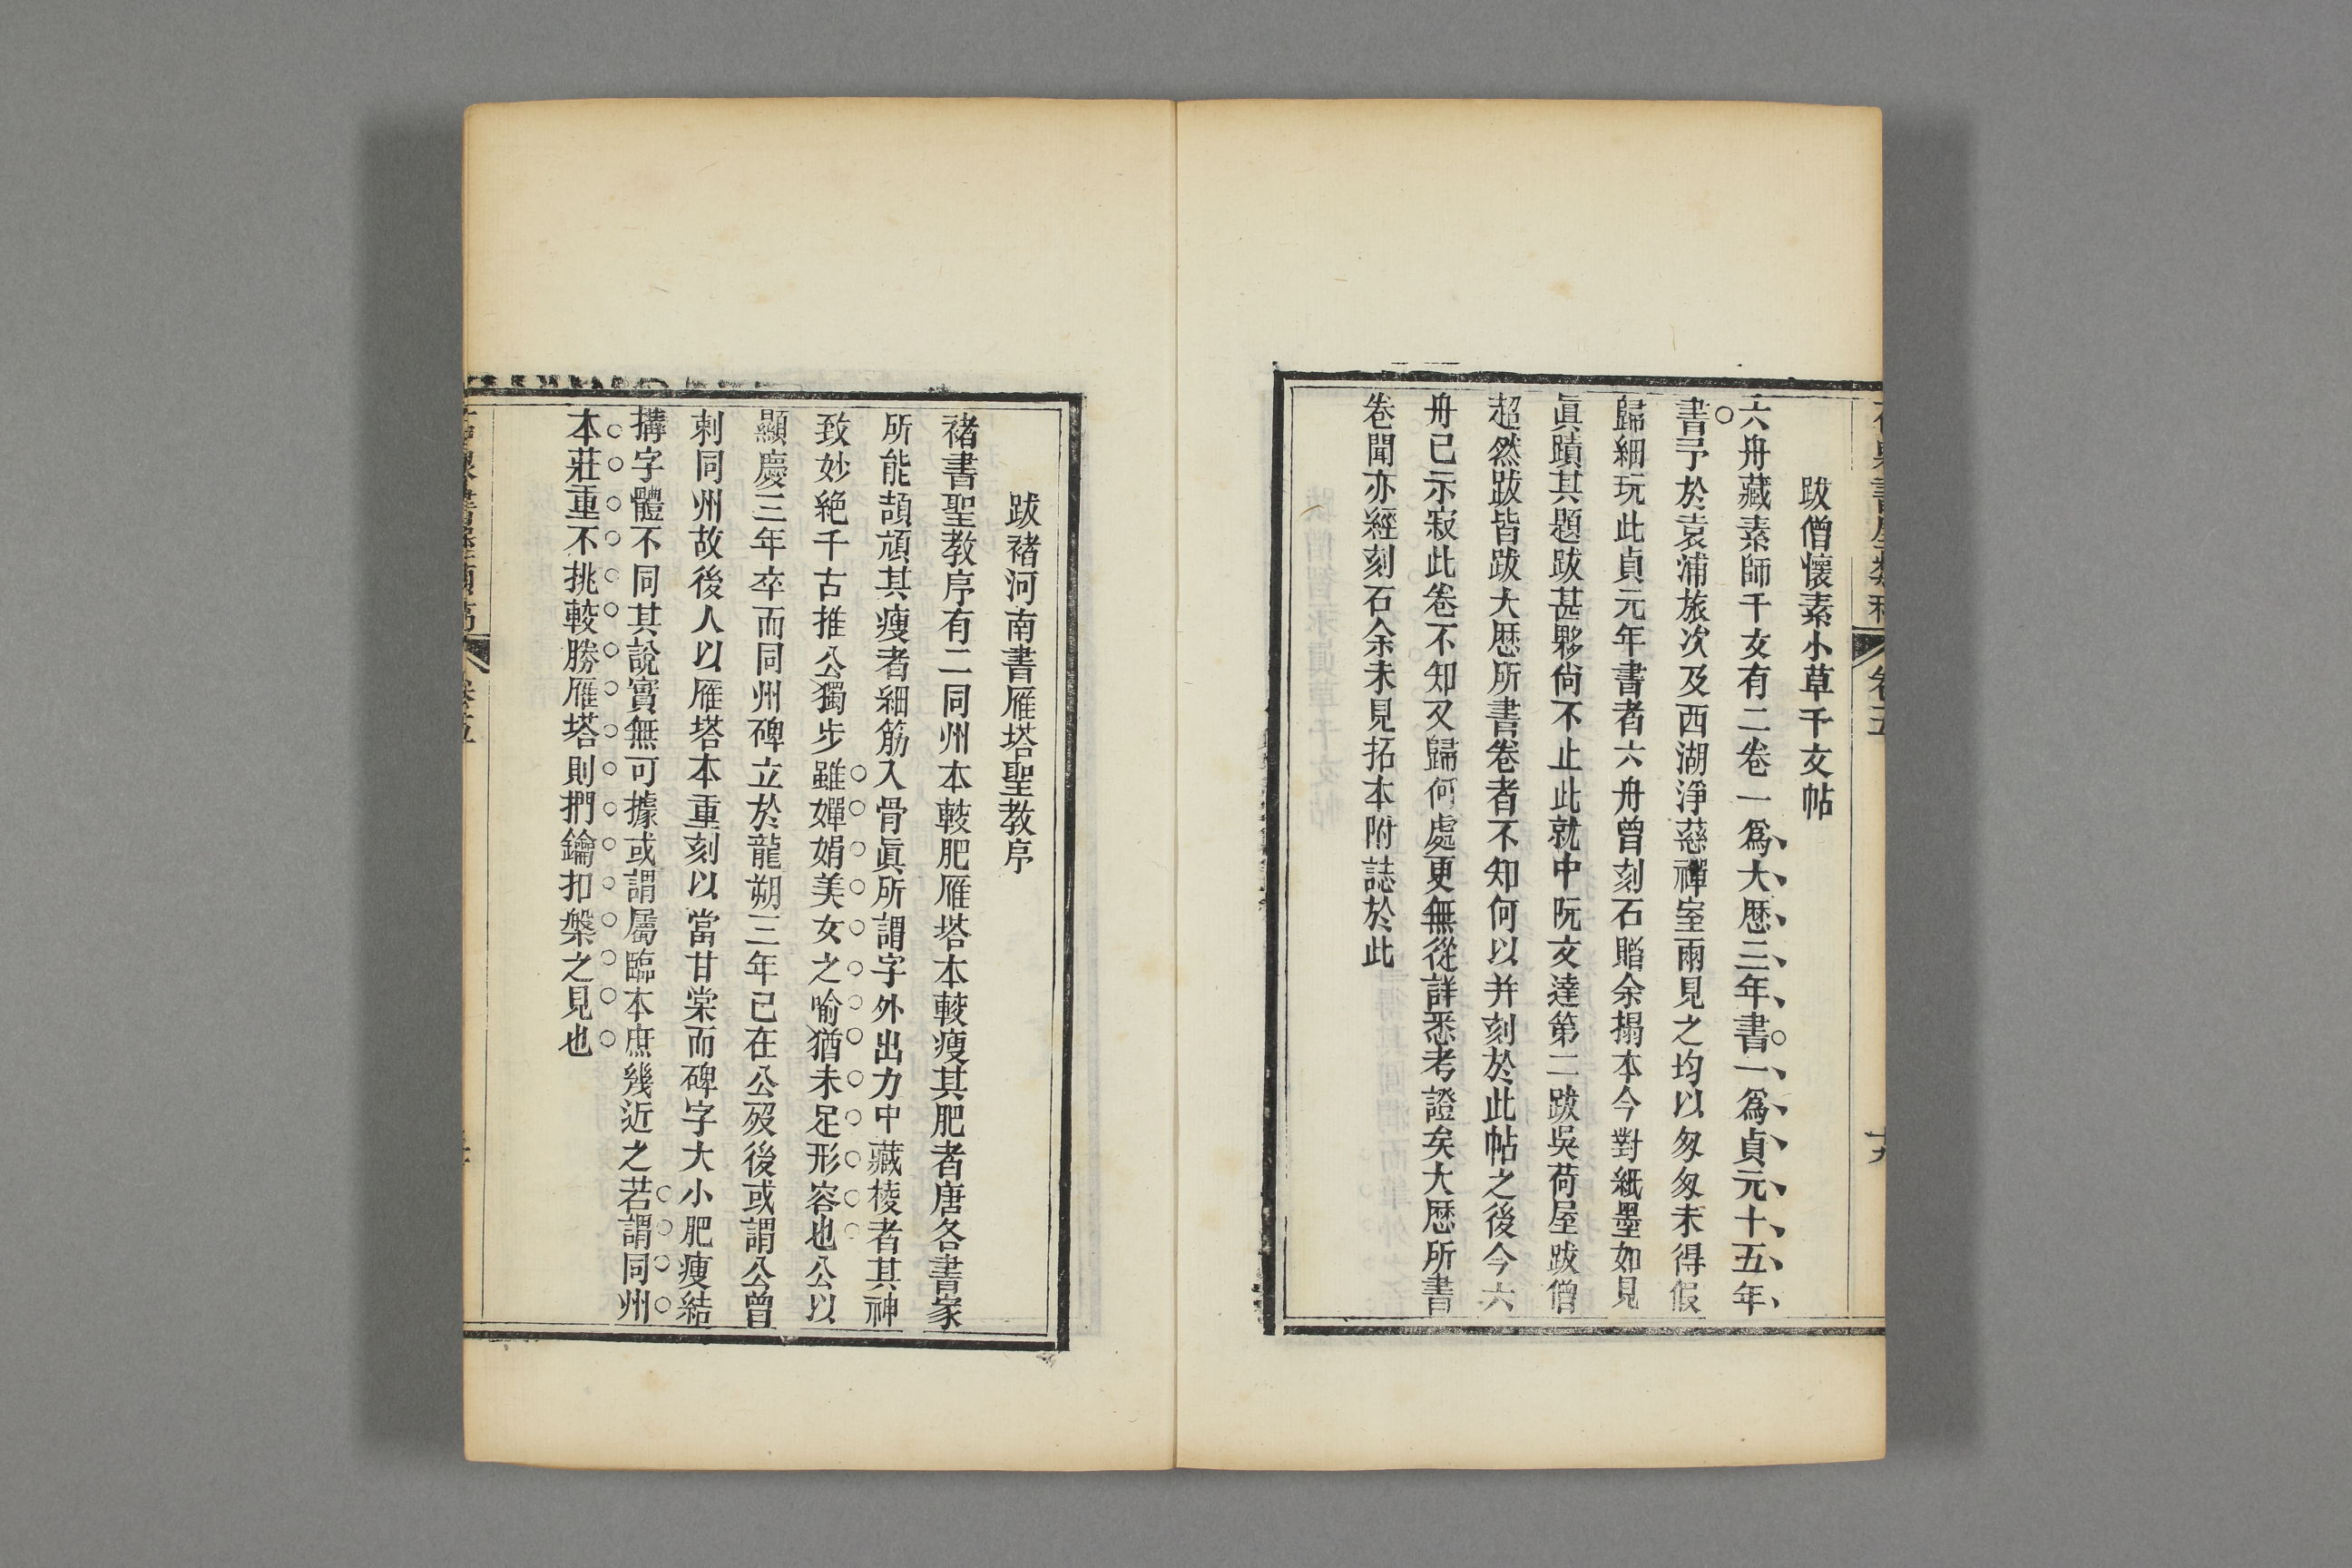 跋僧懷素小草千文帖
六舟藏素師千文有二卷一爲大厯三年書一爲貞元十五年
書予於袁浦旅次及西湖淨慈禪室兩見之均以匆匆未得假
歸細玩此貞元年書者六舟曾刻石贈余搨本今對紙墨如見
眞蹟其題跋甚夥尙不止此就中阮文達第二跋吳荷屋跋僧
超然跋皆跋大厯所書卷者不知何以并刻於此帖之後今六
舟已示寂此卷不知又歸何處更無從詳悉考證矣大厯所書
卷聞亦經刻石余未見拓本附誌於此
卷五
十九
跋褚河南書雁塔聖教序
褚書聖教序有二同州本較肥雁塔本較瘦其肥者唐各書家
所能頡頏其瘦者細筋入骨眞所謂字外出力中藏棱者其神
致妙絶千古推公獨步雖嬋娟美女之喻猶未足形容也公以
顯慶三年卒而同州碑立於龍朔三年已在公歿後或謂公曾
刺同州故後人以雁塔本重刻以當甘棠而碑字大小肥瘦結
搆字體不同其說實無可據或謂屬臨本庶幾近之若謂同州
本莊重不挑較勝雁塔則捫鑰扣槃之見也